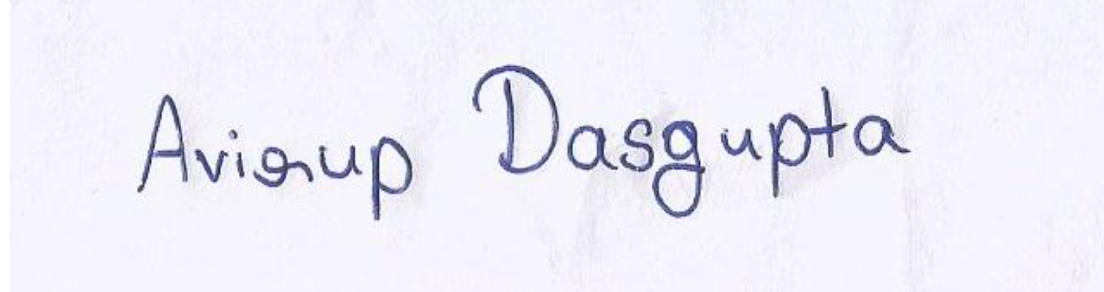 Avirup Dasgupta